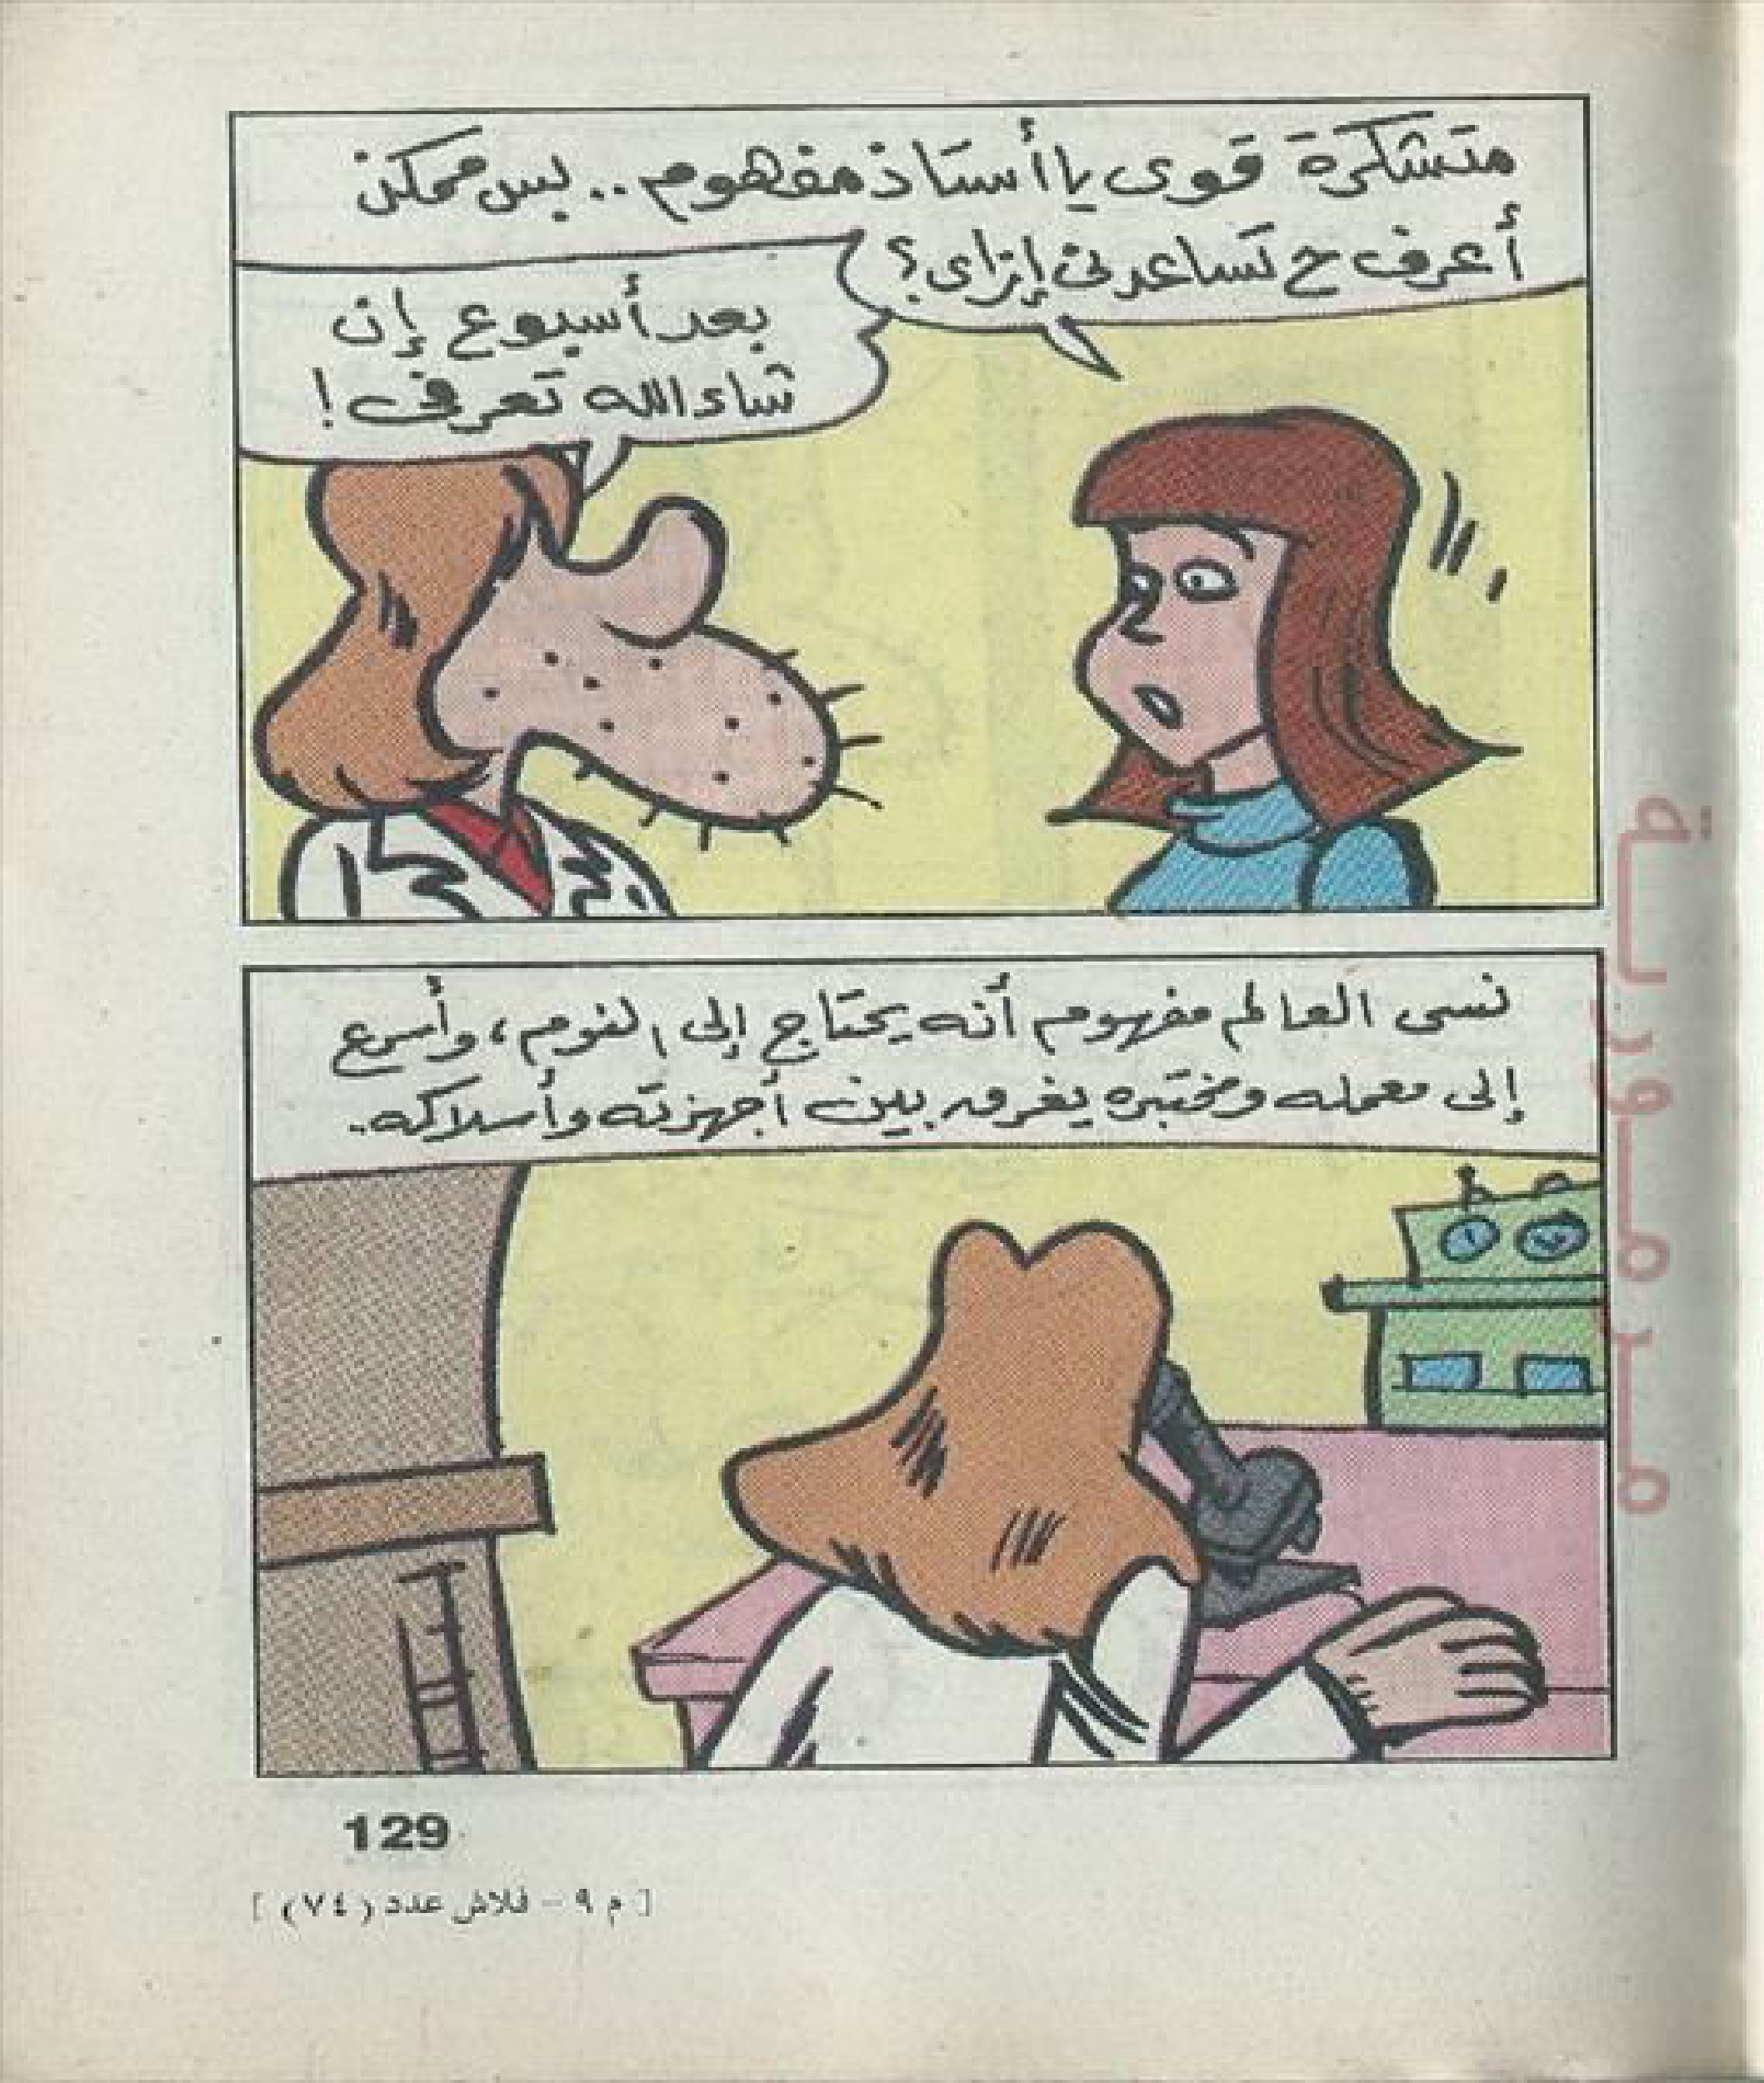 متشكرة قوى يا أستاذ مفهوم .. بس ممكن
أعرف ح تساعدنى إزاى؟
بعد أسبوع إن
شاء الله تعرفى!
نسى العالم مفهوم أنه يحتاج إلى النوم، وأسرع
إلى معمله ومختبره يغرق بين أجهزته وأسلاكه.
129
[ م ٩ - فلاش عدد (٧٤) ]